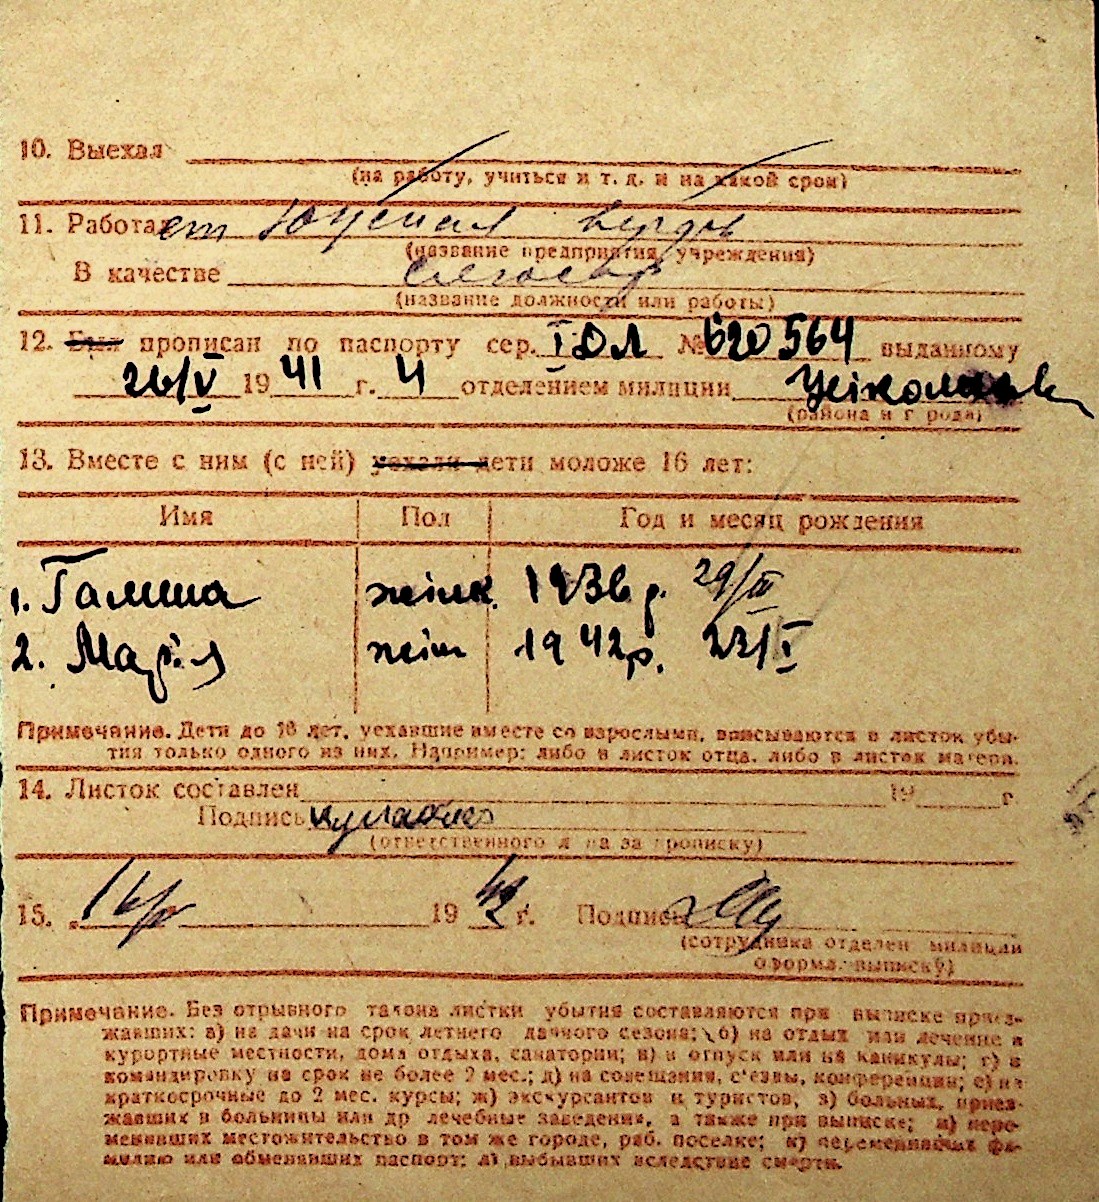 10. Выехал
(на работу, учиться и т. д. и на какой срок)
11. Работает
(название предприятия, учреждения)
В качестве слесарь
(название должности или работы)
12. Был прописан по паспорту сер. І ДЛ № 620564 выданному
26/V 1941 г. 4 отделением милиции
(района и города)
13. Вместе с ним (с ней) уехали дети моложе 16 лет:
Имя Пол Год и месяц рождения
1. Галина жінк. 1936 р. 29/III
2. Марія жін 1942 р. 23/I
Примечание. Дети до 16 лет, уехавшие вместе со взрослыми, вписываются в листок убы-
тия только одного из них. Например: либо в листок отца, либо в листок матери.
14. Листок составлен 19 г
Подпись
(ответственного лица за прописку)
15. „ 1942 г. Подпись
(сотрудника отделен. милиции
оформл. выписку)
Примечание. Без отрывного талона листки убытия составляются при выписке приез-
жавших: а) на дачи на срок летнего дачного сезона; б) на отдых или лечение в
курортные местности, дома отдыха, санатории; в) в отпуск или на каникулы; г) в
командировку на срок не более 2 мес.; д) на совещания, съезды, конференции; е) на
краткосрочные до 2 мес. курсы; ж) экскурсантов и туристов, з) больных, приез-
жавших в больницы или др лечебные заведения, а также при выписке; и) пере-
менивших местожительство в том же городе, раб. поселке; к) переменивших фа-
милию или обменявших паспорт; л) выбывших вследствие смерти.